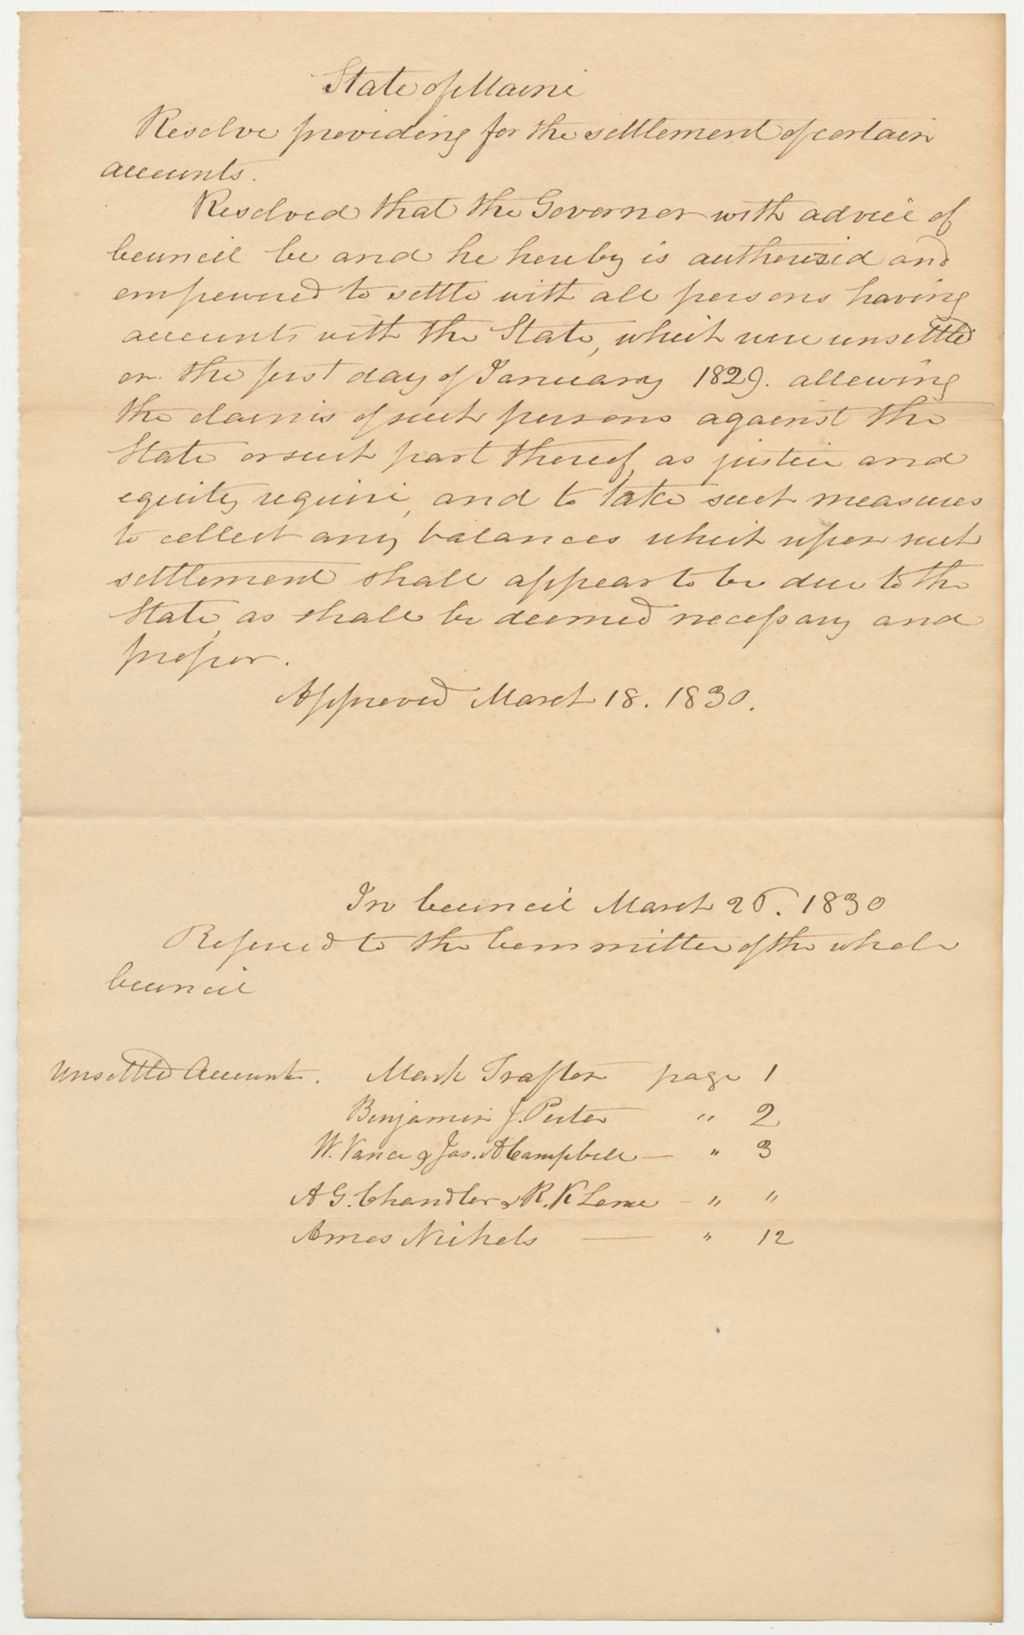 State of Maine
Resolve providing for the settlement of certain
accounts.
Resolved that the Governor with advice of
Council be and he hereby is authorised and
empowered to settle with all persons having
accounts with the State, which were unsettled
on the first day of January 1829. allowing
the claims of such persons against the
State or such part thereof, as justice and
equity require, and to take such measures
to collect any balances which upon such
settlement shall appear to be due to the
State, as shall be deemed necessary and
proper.
Approved March 18. 1830.
In Council March 26. 1830
Referred to the Committee of the whole
Council
Unsettled Accounts. Mark Trafton page 1
Benjamin J. Porter " 2
W. Vance & Jas. A Campbell — " 3
A G. Chandler & R. K Lowe - " "
Amos Nichols — " 12